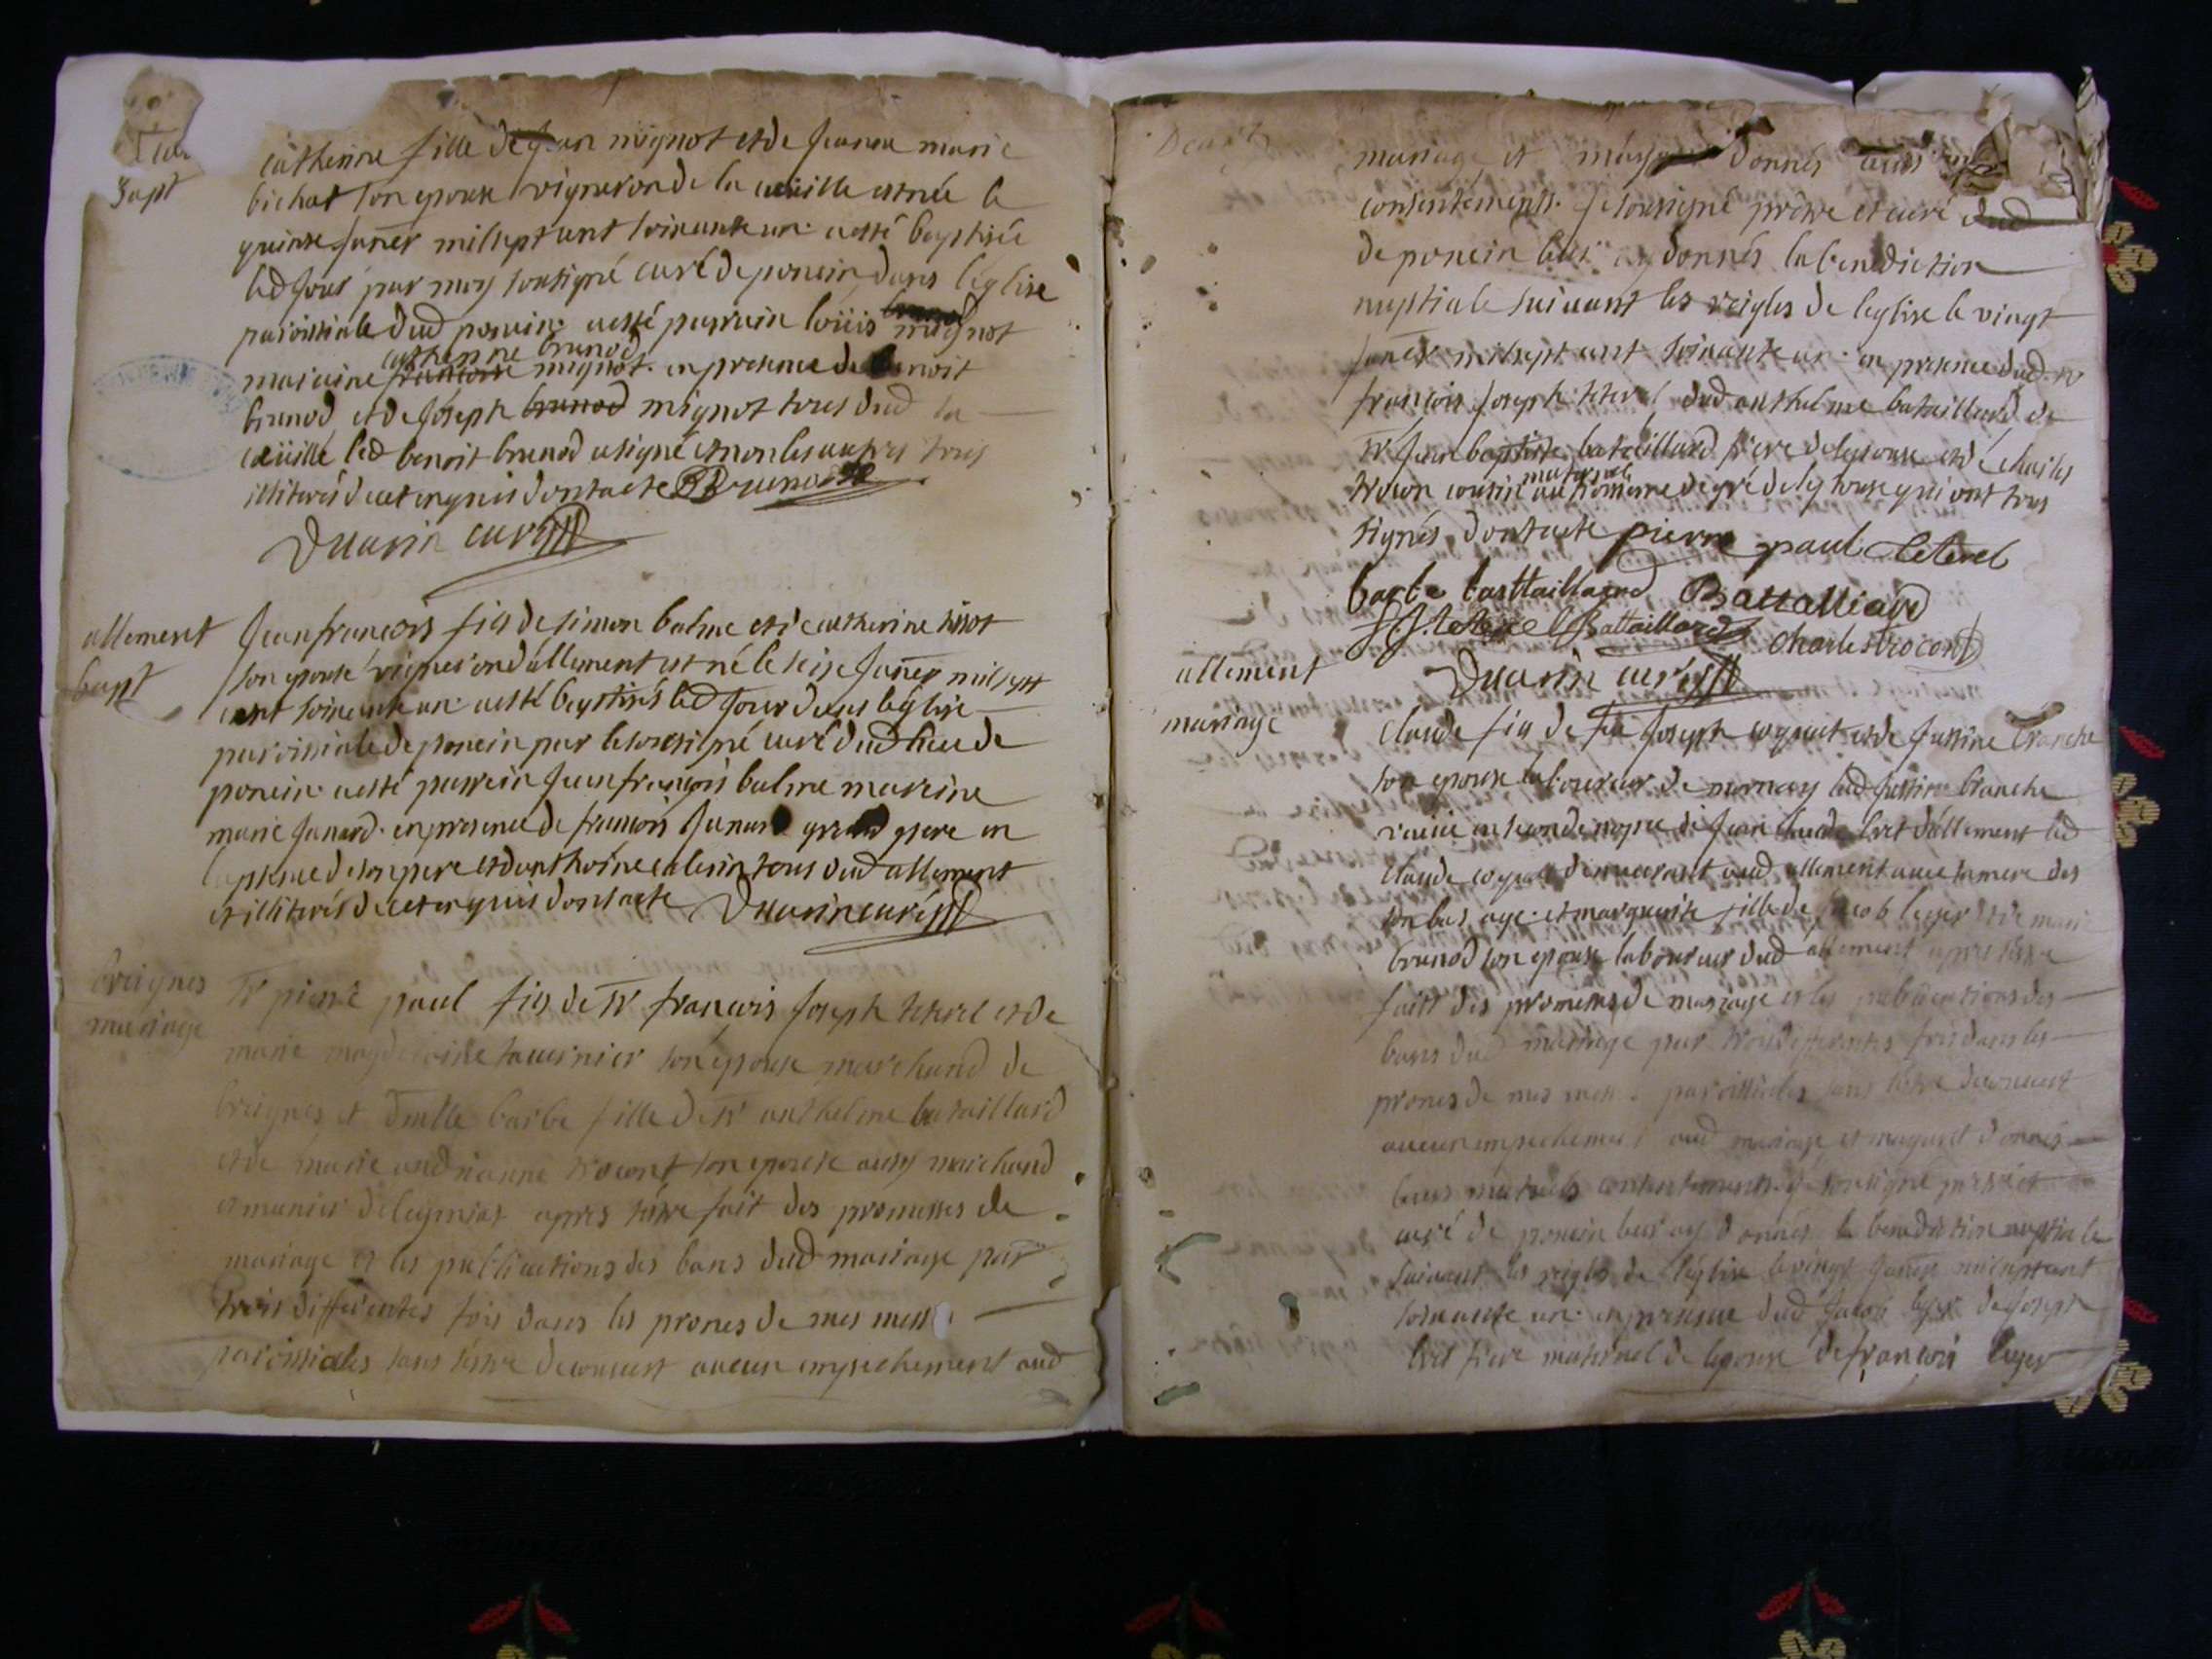 bapt
catherine fille de Jean mignot et de Jeanne marie
bichat son epouse vigneron de la cueille est née le
quinze janer mil sept cent soixante un a esté baptisée
led jour par moy sousigné curé de poncin dans l'eglise
paroissiale dud poncin a esté parrain loüis mignot
catherine brunod
maraine francoise mignot en presence de benoit
brunod et de Joseph brunod mignot tous dud la
cüeille led benoit brunod a signé et non les autres tous
illiterés de ce enquis dont acte B Brunod
Duarin curé
allement
bapt
Jean francois fils de simon balme et de catherine
son epouse vigneron d'allement est né le seize janer mil sept
cent soixante un a esté baptisés led jour dans léglise
paroissiale de poncin par le sousigné curé dud lieu de
poncin a esté parrein Jean françois balme mareine
marie Janard en presence de francois Janard grand pere en
l'absence de son pere et d'anthoine tous dud allement
et illiterés de ce enquis dont acte Duarin curé
breignes
mariage
Sr pierre paul fils de Sr francois Joseph teterel et de
marie magdeleine tavernier son épouse marchand de
breignes et Dmlle barbe fille de Sr anthelme bataillard
et de marie andrianne trocont son epouse aussy marchand
et munier de leymiat apres s'être fait des promesses de
mariage et les publications des bans dud mariage par
trois differentes fois dans les prones de mes mess
paroissiales sans s'être decouvert aucun empechement aud
mariage et donnés
consentements Je sousigné prêtre et curé
de poncin leur ay donnés la benediction
nuptiale suivant les reigles de leglise le vingt
janer mil sept cent soixante un en presence dud Sr
francois Joseph teterel dud anthelme bataillard de
Sr Jean baptiste bataillard frere de lepouse et de charles
maternel
trocon cousin au troisieme degré de lepouse qui ont tous
signés dont acte pierre paul teterel
barbe battaillard Battalliard
Battaillard Charles trocont
Duarin curé
allement
mariage
Claude fils de feu Joseph coquet et de Justine branche
son epouse laboureur de mornay lad Justine branche
vaivie en seconde nopce de Jean claude bret d'allement led
Claude coquet demeurant aud allement avec sa mere des
son bas age et marguerite fille de jacob leger et de marie
brunod son epouse laboureur dud allement apres s'être
faitt des promesses de mariage et les publications des
bans dud mariage par trois differentes fois dans les
prones de mes mess paroissiales sans s'être decouvert
aucun empechement aud mariage et m'ayant donnés
leurs mutuels consentements je sousigné prêtre et
curé de poncin leur ay donnés la benediction nuptiale
suivant les reigles de l'église le vingt janer mil sept cent
soixante un en presence dud Jacob leger de Joseph
bret frere maternel de lepoux de francois leger